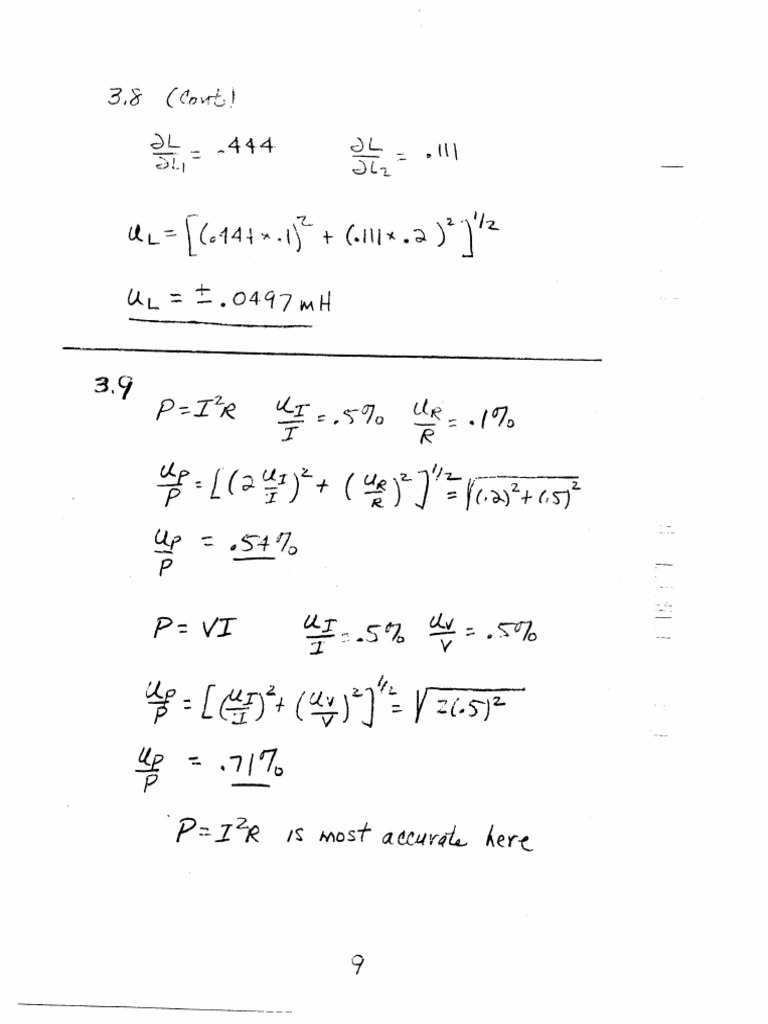 3.8 (Cont)
∂L/∂L₁ = .444 ∂L/∂L₂ = .111
u_L = [(.444 × .1)² + (.111 × .2)²]^1/2
u_L = ± .0497 mH
3.9
P = I²R u_I/I = .5% u_R/R = .1%
u_P/P = [(2 u_I/I)² + (u_R/R)²]^1/2 = √(.2)² + (.5)²
u_P/P = .54%
P = VI u_I/I = .5% u_V/V = .5%
u_P/P = [(u_I/I)² + (u_V/V)²]^1/2 = √2(.5)²
u_P/P = .71%
P = I²R is most accurate here
9